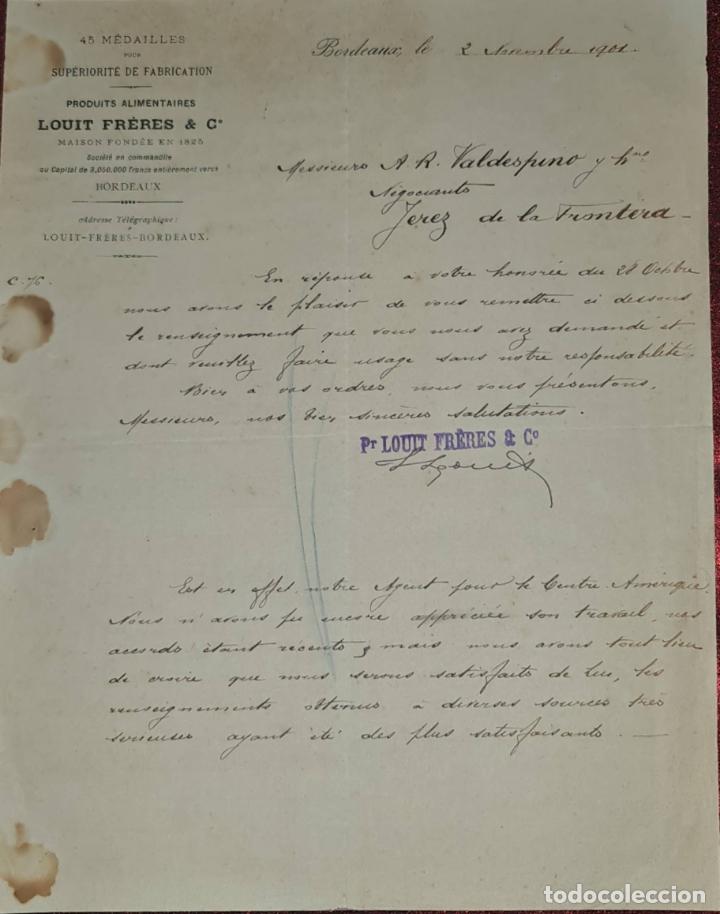 45 MÉDAILLES
POUR
SUPÉRIORITÉ DE FABRICATION
PRODUITS ALIMENTAIRES
LOUIT FRÈRES & Cº
MAISON FONDÉE EN 1825
Société en commandite
au Capital de 3,050,000 francs entièrement versé
BORDEAUX
Adresse Télégraphique:
LOUIT-FRÈRES-BORDEAUX.
Bordeaux, le 2 Novembre 1901.
Messieurs A. R. Valdespino y hno
Négociants
Jerez de la Frontera
En réponse à votre honorée du 28 Octobre
nous avons le plaisir de vous remettre ci dessous
le renseignement que vous nous avez demandé et
dont veuillez faire usage sans notre responsabilité.
Bien à vos ordres, nous vous présentons,
Messieurs, nos bien sincères salutations.
Pr LOUIT FRÈRES & Cº
Est en effet notre Agent pour le Centre Amérique.
Nous n'avons pu encore appréciée son travail, nos
accords étant récents, mais nous avons tout lieu
de croire que nous serons satisfaits de lui, les
renseignements obtenus à diverses sources très
serieuses ayant été des plus satisfaisants.
todocoleccion
todocoleccion.net